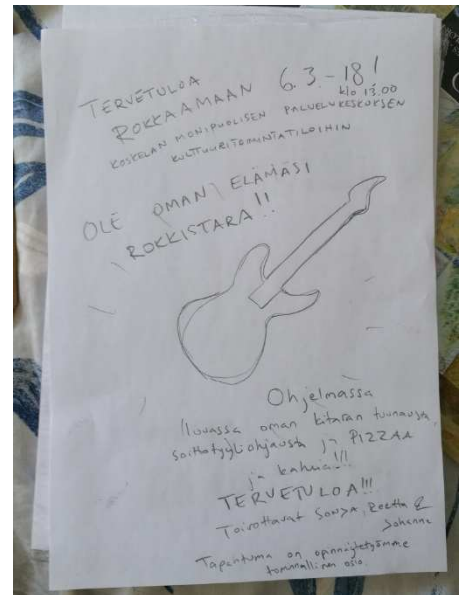 TERVETULOA
ROKKAAMAAN 6.3.-18!
klo 13.00
KOSKELAN MONIPUOLISEN PALVELUKESKUKSEN
KULTTUURITOIMINTATILOIHIN
OLE OMAN ELÄMÄSI
ROKKISTARA!!
Ohjelmassa
luvassa oman kitaran tuunausta,
soittotyyliohjausta ja PIZZAA
ja kahvia!!!
TERVETULOA!!!
Toivottavat SONJA, Reetta &
Johanna
Tapahtuma on opinnäytetyömme
toiminnallinen osio.